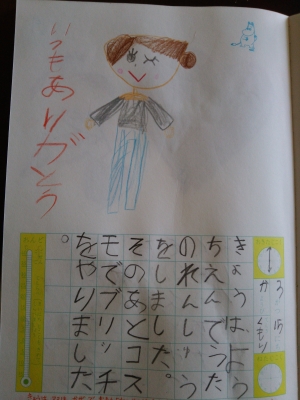 いつもありがとう
3 15
か くもり
きょうは、よう
ちえんでうた
のれんしゅう
をしました。
そのあとコス
モでブリッチ
をやりました
。